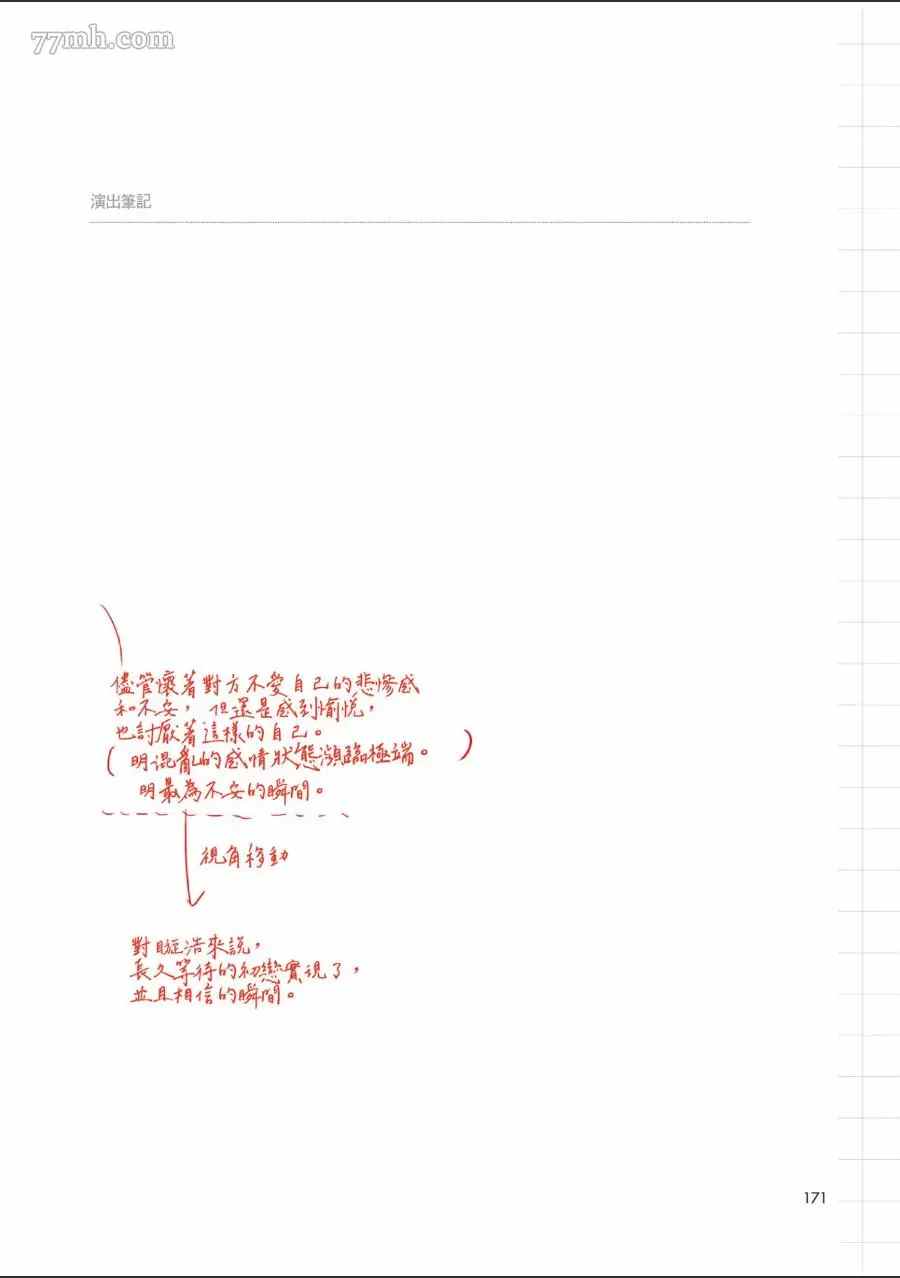 77mh.com
演出筆記
儘管懷著對方不愛自己的悲慘感
和不安，但還是感到愉悅，
也討厭著這樣的自己。
（明混亂的感情狀態瀕臨極端。）
明最為不安的瞬間。
視角移動
對眩浩來說，
長久等待的初戀實現了，
並且相信的瞬間。
171